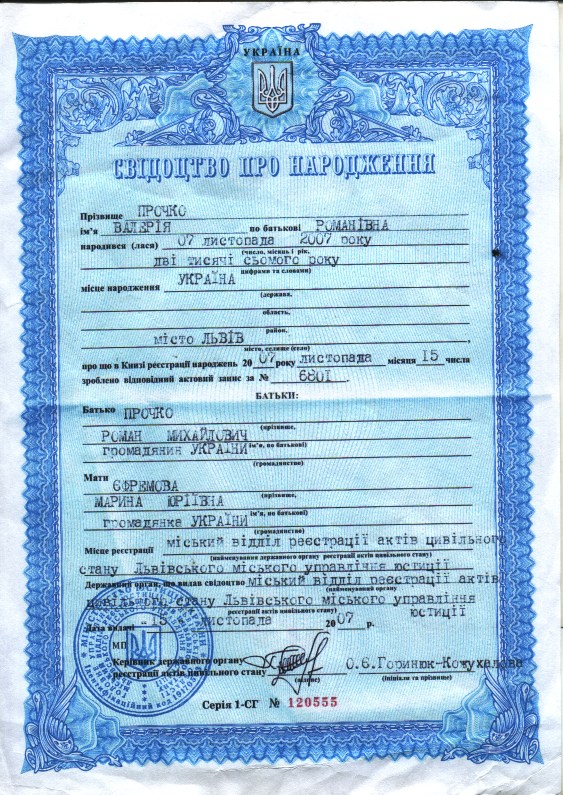 УКРАЇНА
СВІДОЦТВО ПРО НАРОДЖЕННЯ
Прізвище ПРОЧКО
ім'я ВАЛЕРІЯ по батькові РОМАНІВНА
народився (лася) 07 листопада 2007 року
(число, місяць і рік,
дві тисячі сьомого року
цифрами та словами)
місце народження УКРАЇНА
(держава,
область,
район,
місто ЛЬВІВ
місто, селище (село)
про що в Книзі реєстрації народжень 2007 року листопада місяця 15 числа
зроблено відповідний актовий запис за № 6801.
БАТЬКИ:
Батько ПРОЧКО
(прізвище,
РОМАН МИХАЙЛОВИЧ
ім'я, по батькові)
громадянин УКРАЇНИ
(громадянство)
Мати
ЄФРЕМОВА
(прізвище,
МАРИНА ЮРІЇВНА
ім'я, по батькові)
громадянка УКРАЇНИ
(громадянство)
Місце реєстрації міський відділ реєстрації актів цивільного
(найменування державного органу реєстрації актів цивільного стану)
стану Львівського міського управління юстиції
Державний орган, що видав свідоцтво міський відділ реєстрації актів
(найменування органу
цивільного стану Львівського міського управління
реєстрації актів цивільного стану)
юстиції
Дата видачі 15 листопада 2007 р.
МП
Керівник державного органу
реєстрації актів цивільного стану О.Є.Горинюк-Кожухалова
(ініціали та прізвище)
Серія 1-СГ № 120555